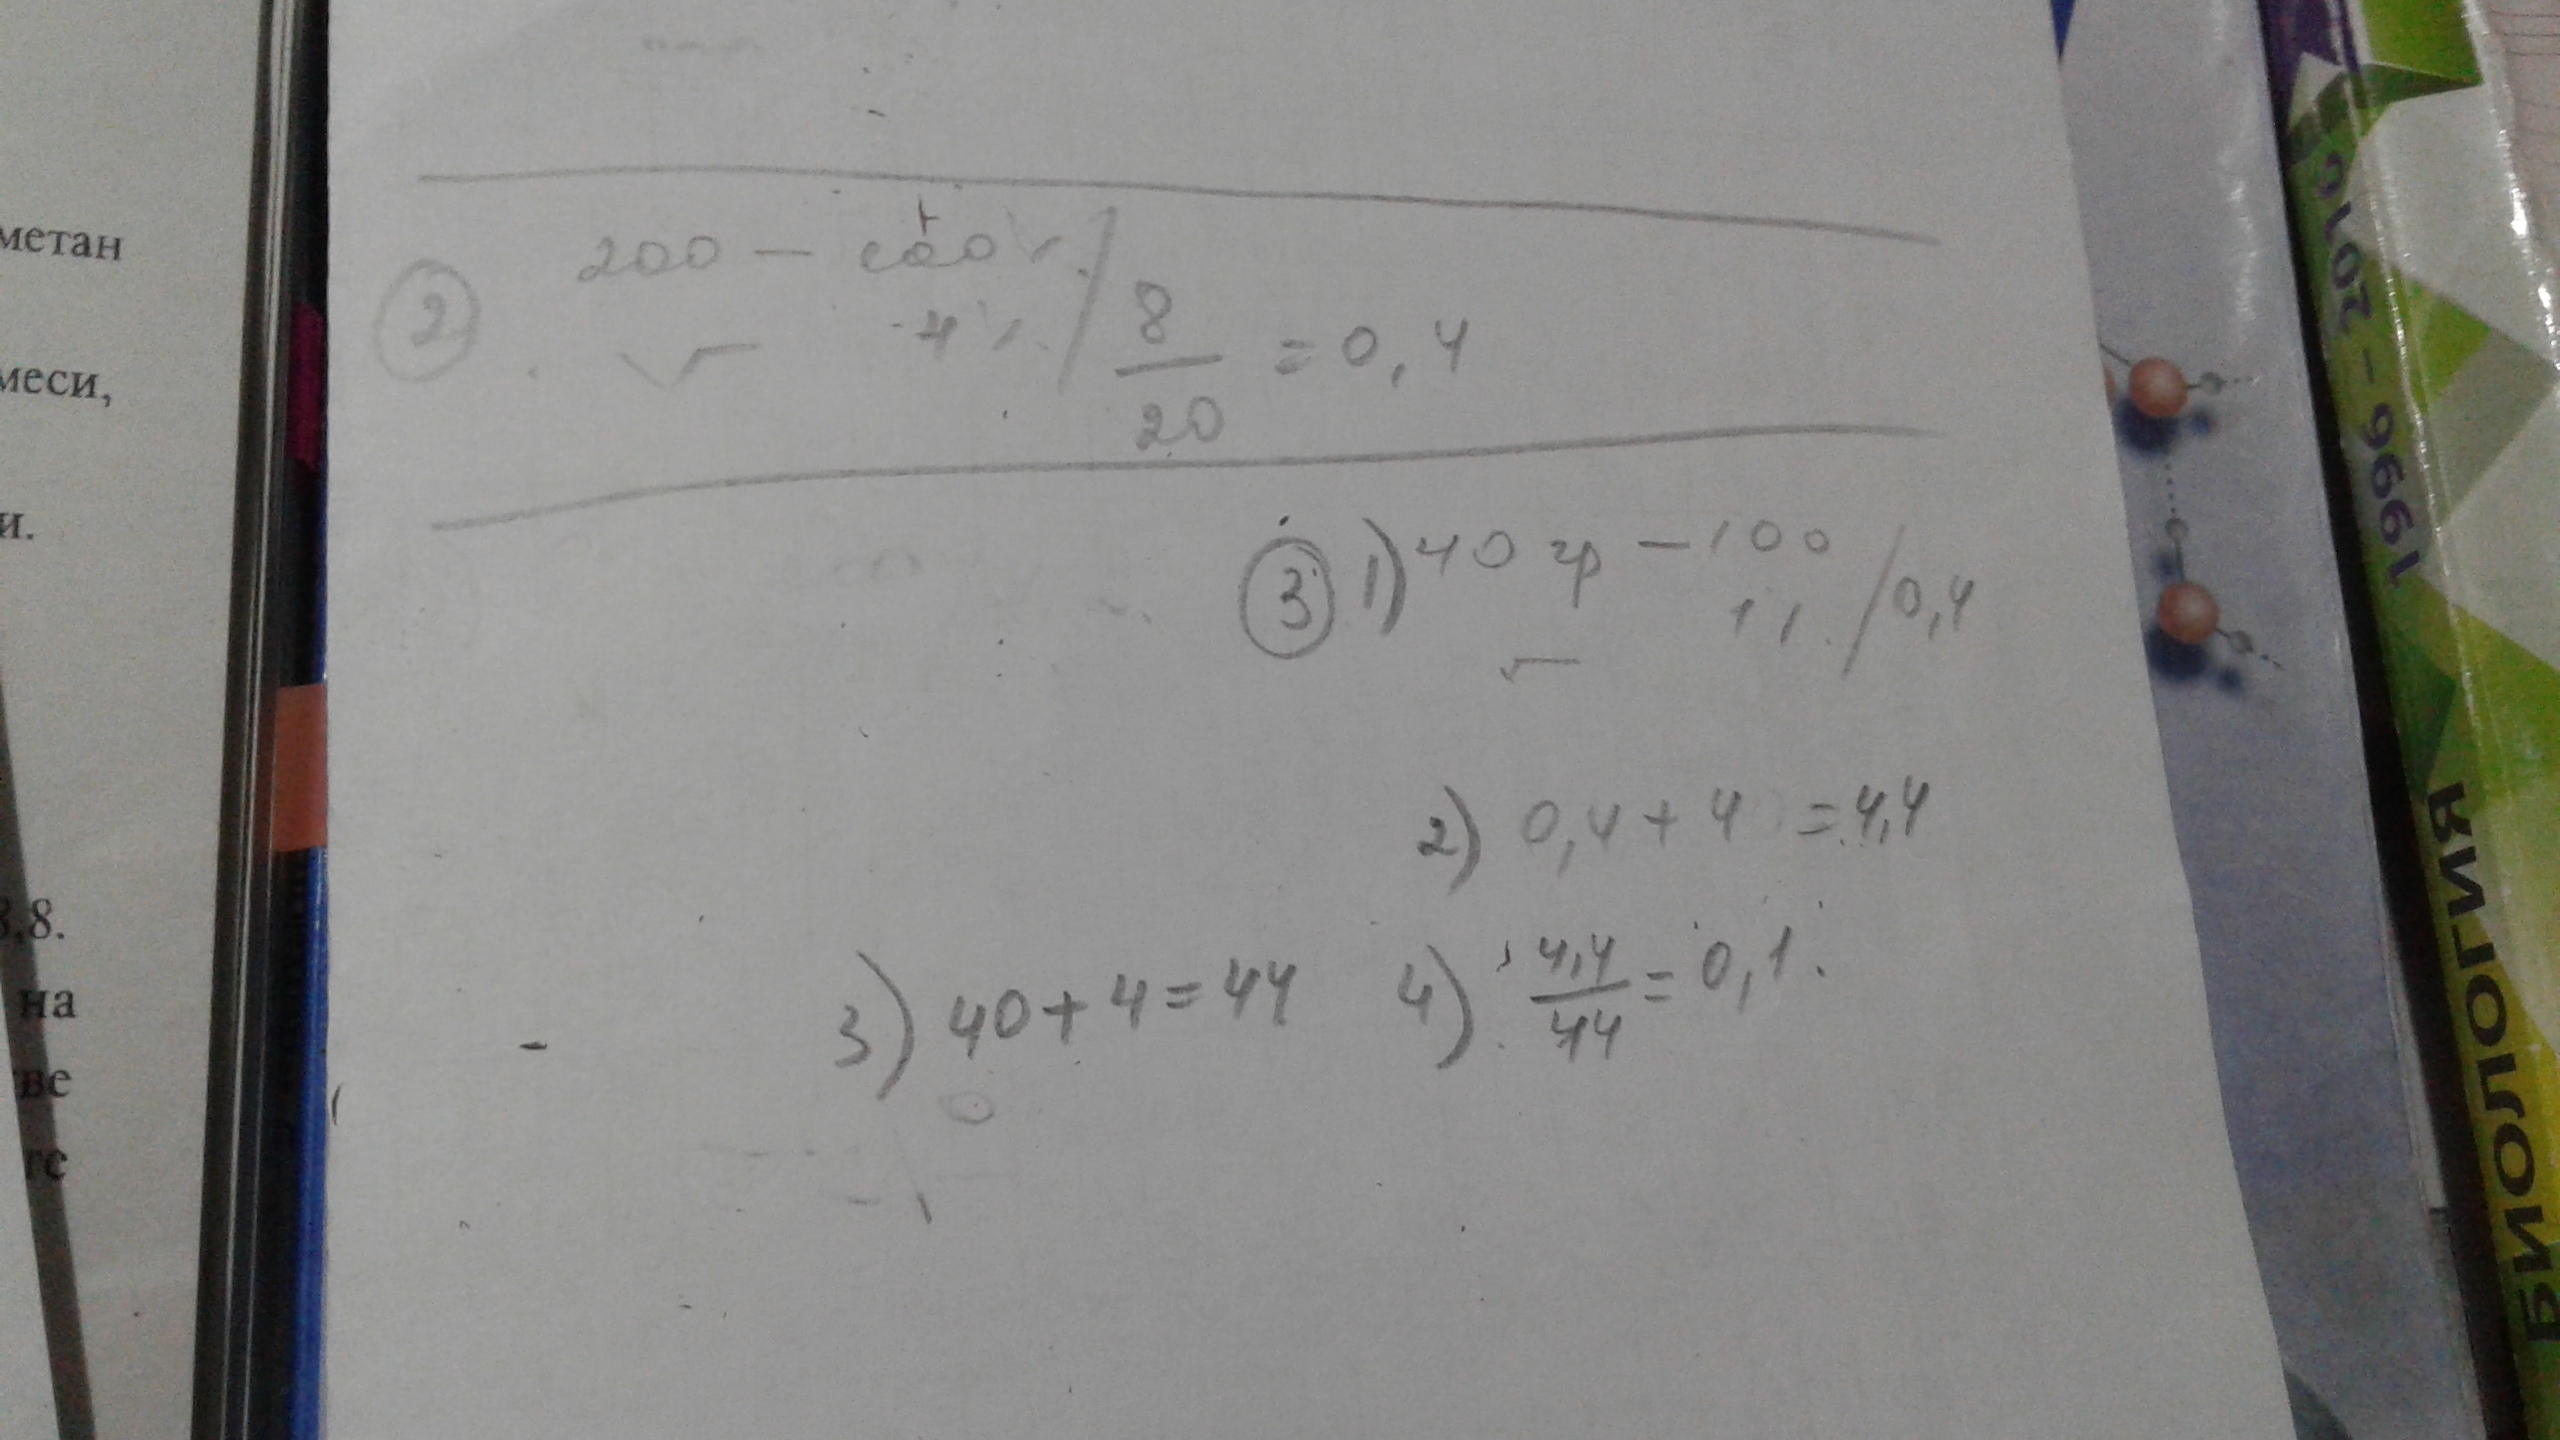 метан
меси,
и.
3,8.
на
ве
те
2
200 — 100%
4%
8
20
= 0,4
3 1) 40 гр — 100
1%
0,4
2) 0,4 + 4 = 4,4
3) 40 + 4 = 44
4) 4,4
44
= 0,1.
1996 - 2016
БИОЛОГИЯ